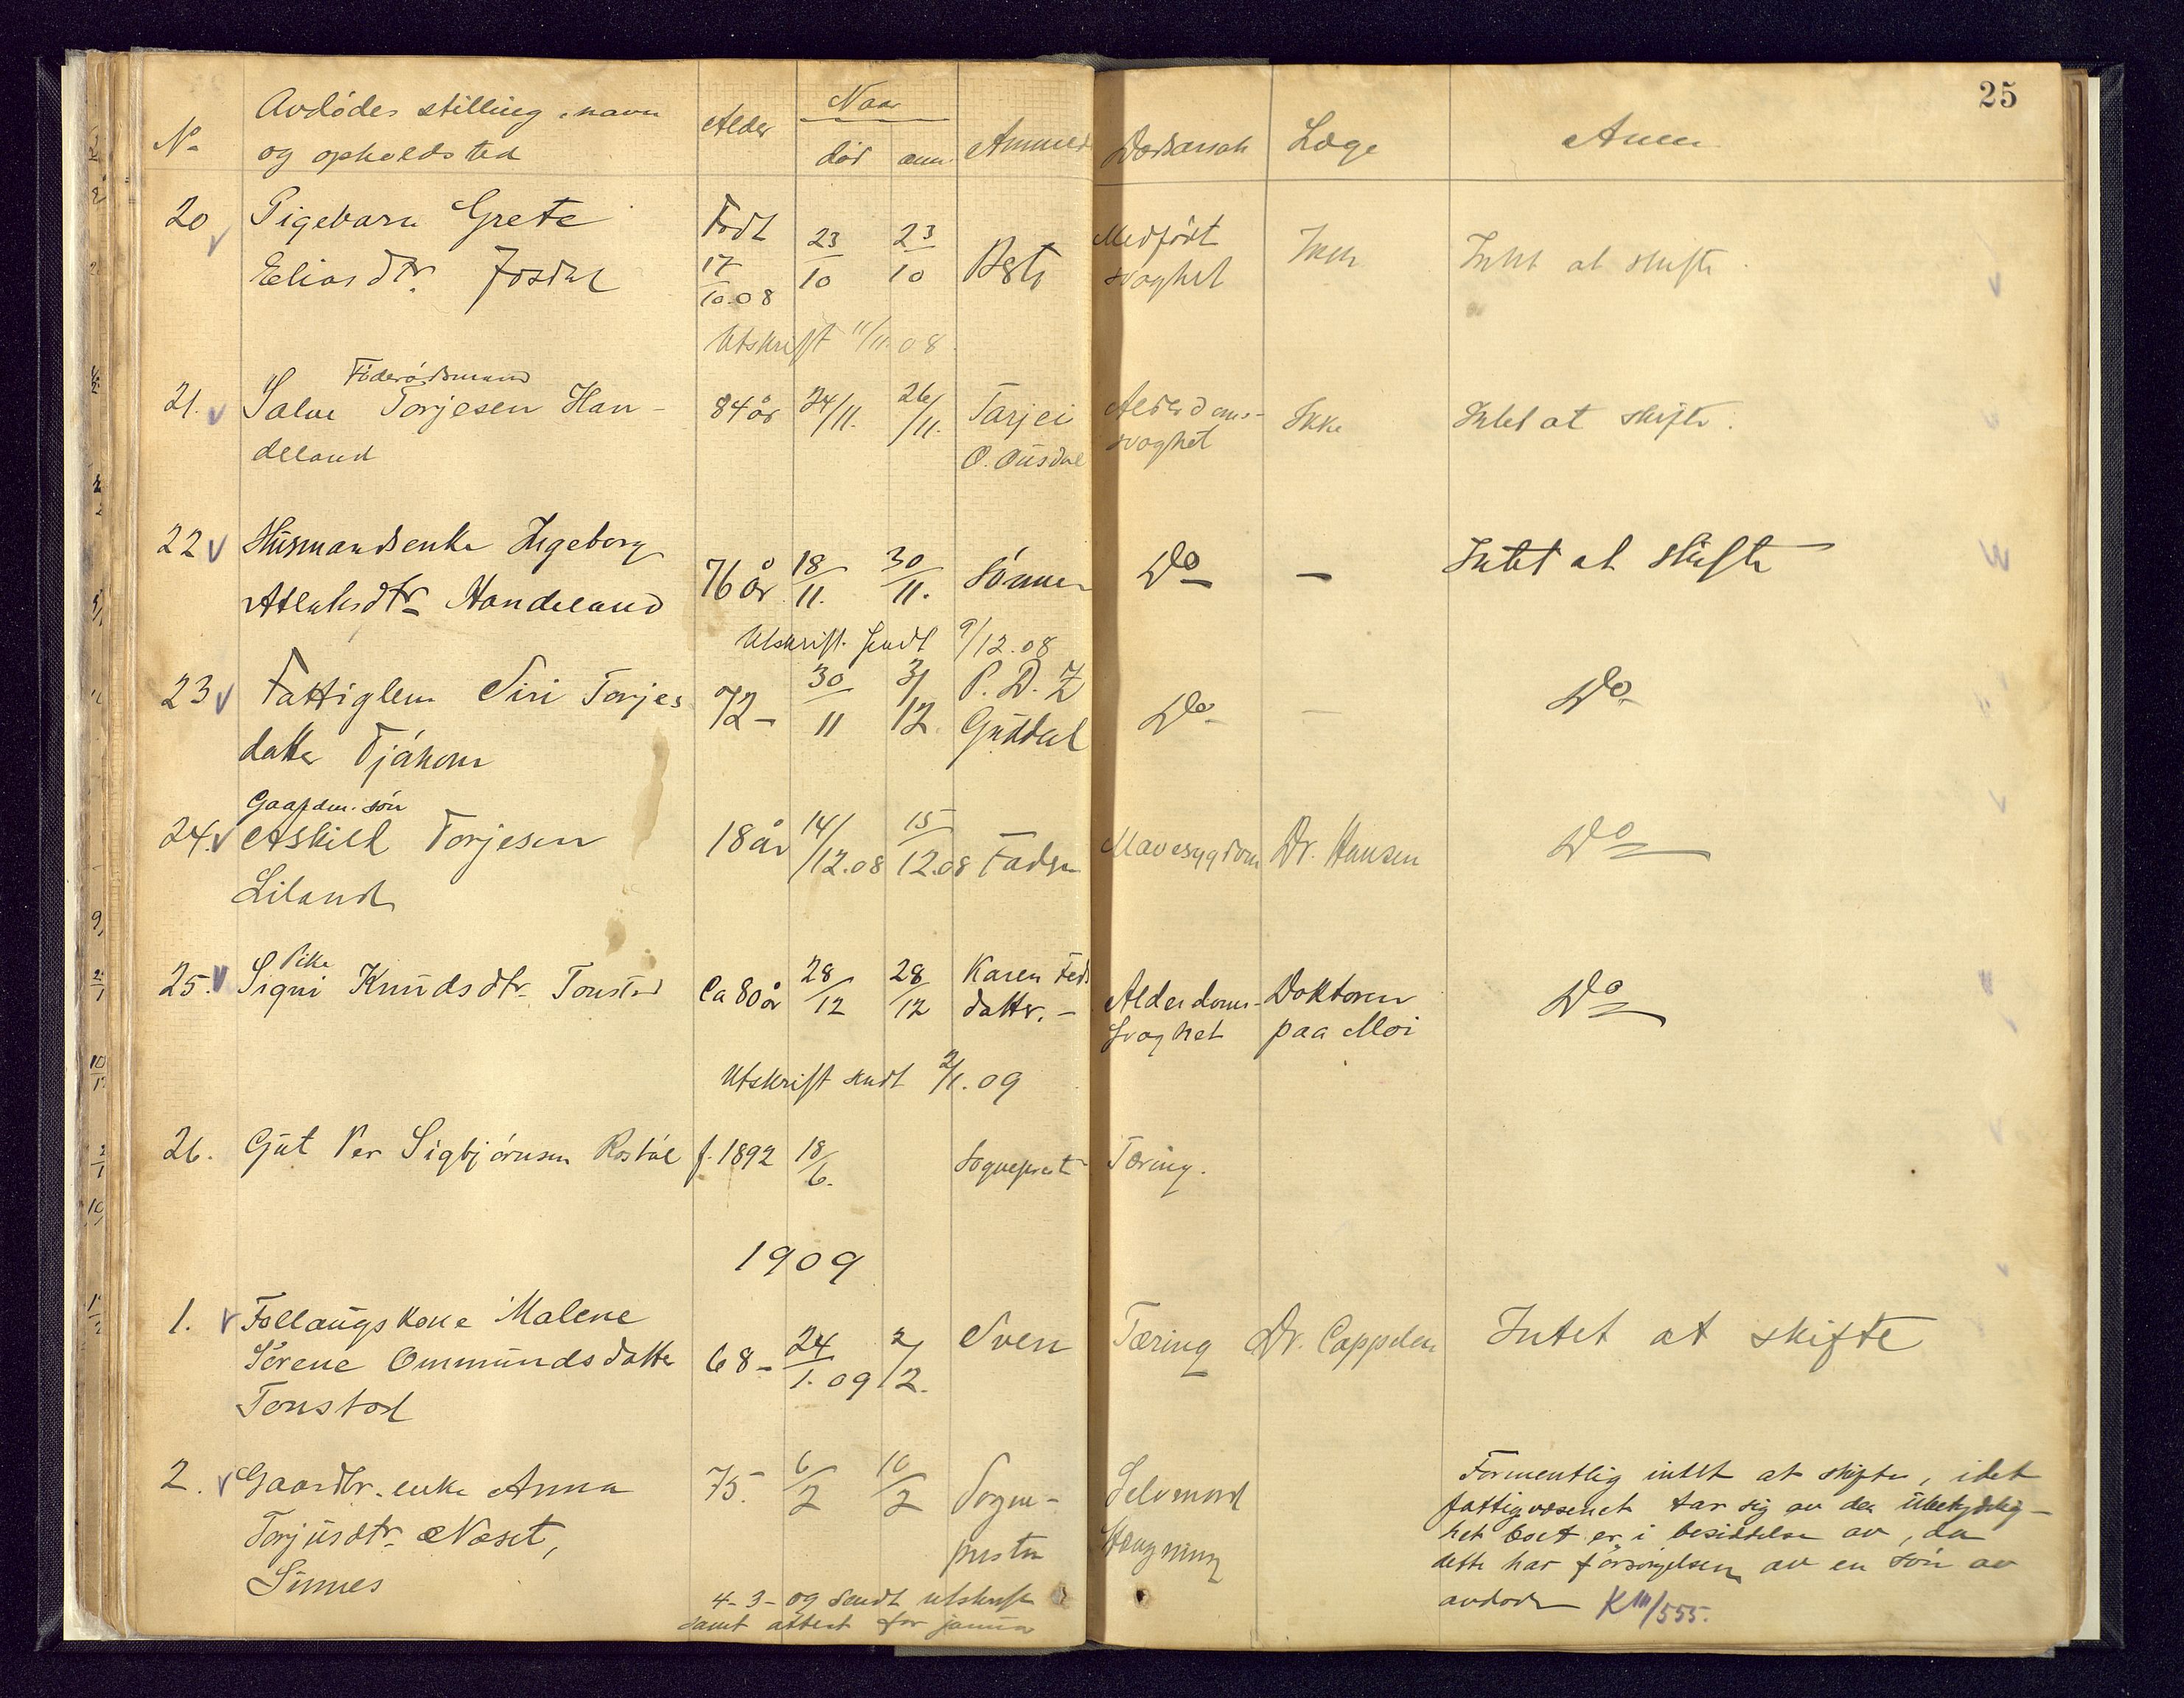 25
Avdödes stilling, navn
og opholdsted
No
Alder
Naar
död
anm.
Anmeld
Dødsaarsak
Læge
Anm.
20 Pigebarn Grete
Eliasdtr. Josdal
Født
17
10.08
23
10
23
10
Medfödt
svaghet
Ikke
Intet at skifte.
Utskrift 11/11 08.
Föderådsmand
21. Salve Torjesen Han-
deland
84 år 24/11. 26/11. Tarjei
O. Ousdal
Alderdoms-
svaghet
Ikke
Intet at skifte.
22 Husmandsenke Ingeborg
Atlaksdtr Handeland
76 år 18/11. 30/11. Sönnen
Do
—
Intet at skifte
Utskrift sendt 9/12.08
23 Fattiglem Siri Torjes
datter Tjåhom
72 – 30/11 3/12 P. D. Z
Guddal
Do
—
Do
Gaardm. sön
24. Askild Torjesen
Liland
18 år 14/12.08 15/12.08 Faderen
Mavesygdom Dr. Hansen
Do
Pike
25. Signi Knudsdtr. Tonstad
Ca 80 år 28/12 28/12 Karen Feds
datter. –
Alderdoms-
svaghet
Doktoren
paa Moi
Do
Utskrift sendt 2/1.09
26. Gut Per Sigbjörnsen Rosdal f. 1892 18/6. Sogneprest Tæring.
1909
1. Follaugskone Malene
Serene Ommundsdatter
Tonstad
68 – 24/1.09 2/2. Sven
Tæring Dr. Cappelen
Intet at skifte
2. Gaardbr. enke Anna
Torjusdtr. Næset,
Sinnes
75. 6/2 10/2 Sogne-
presten
Selvmord
Hængning
Formentlig intet at skifte, idet
fattigvæsenet tar sig av den ubetydelig-
het boet er i besiddelse av, da
dette har forsørgelsen av en sön av
avdøde KIII/555.
4-3-09 sendt utskrift
samt attest for januar